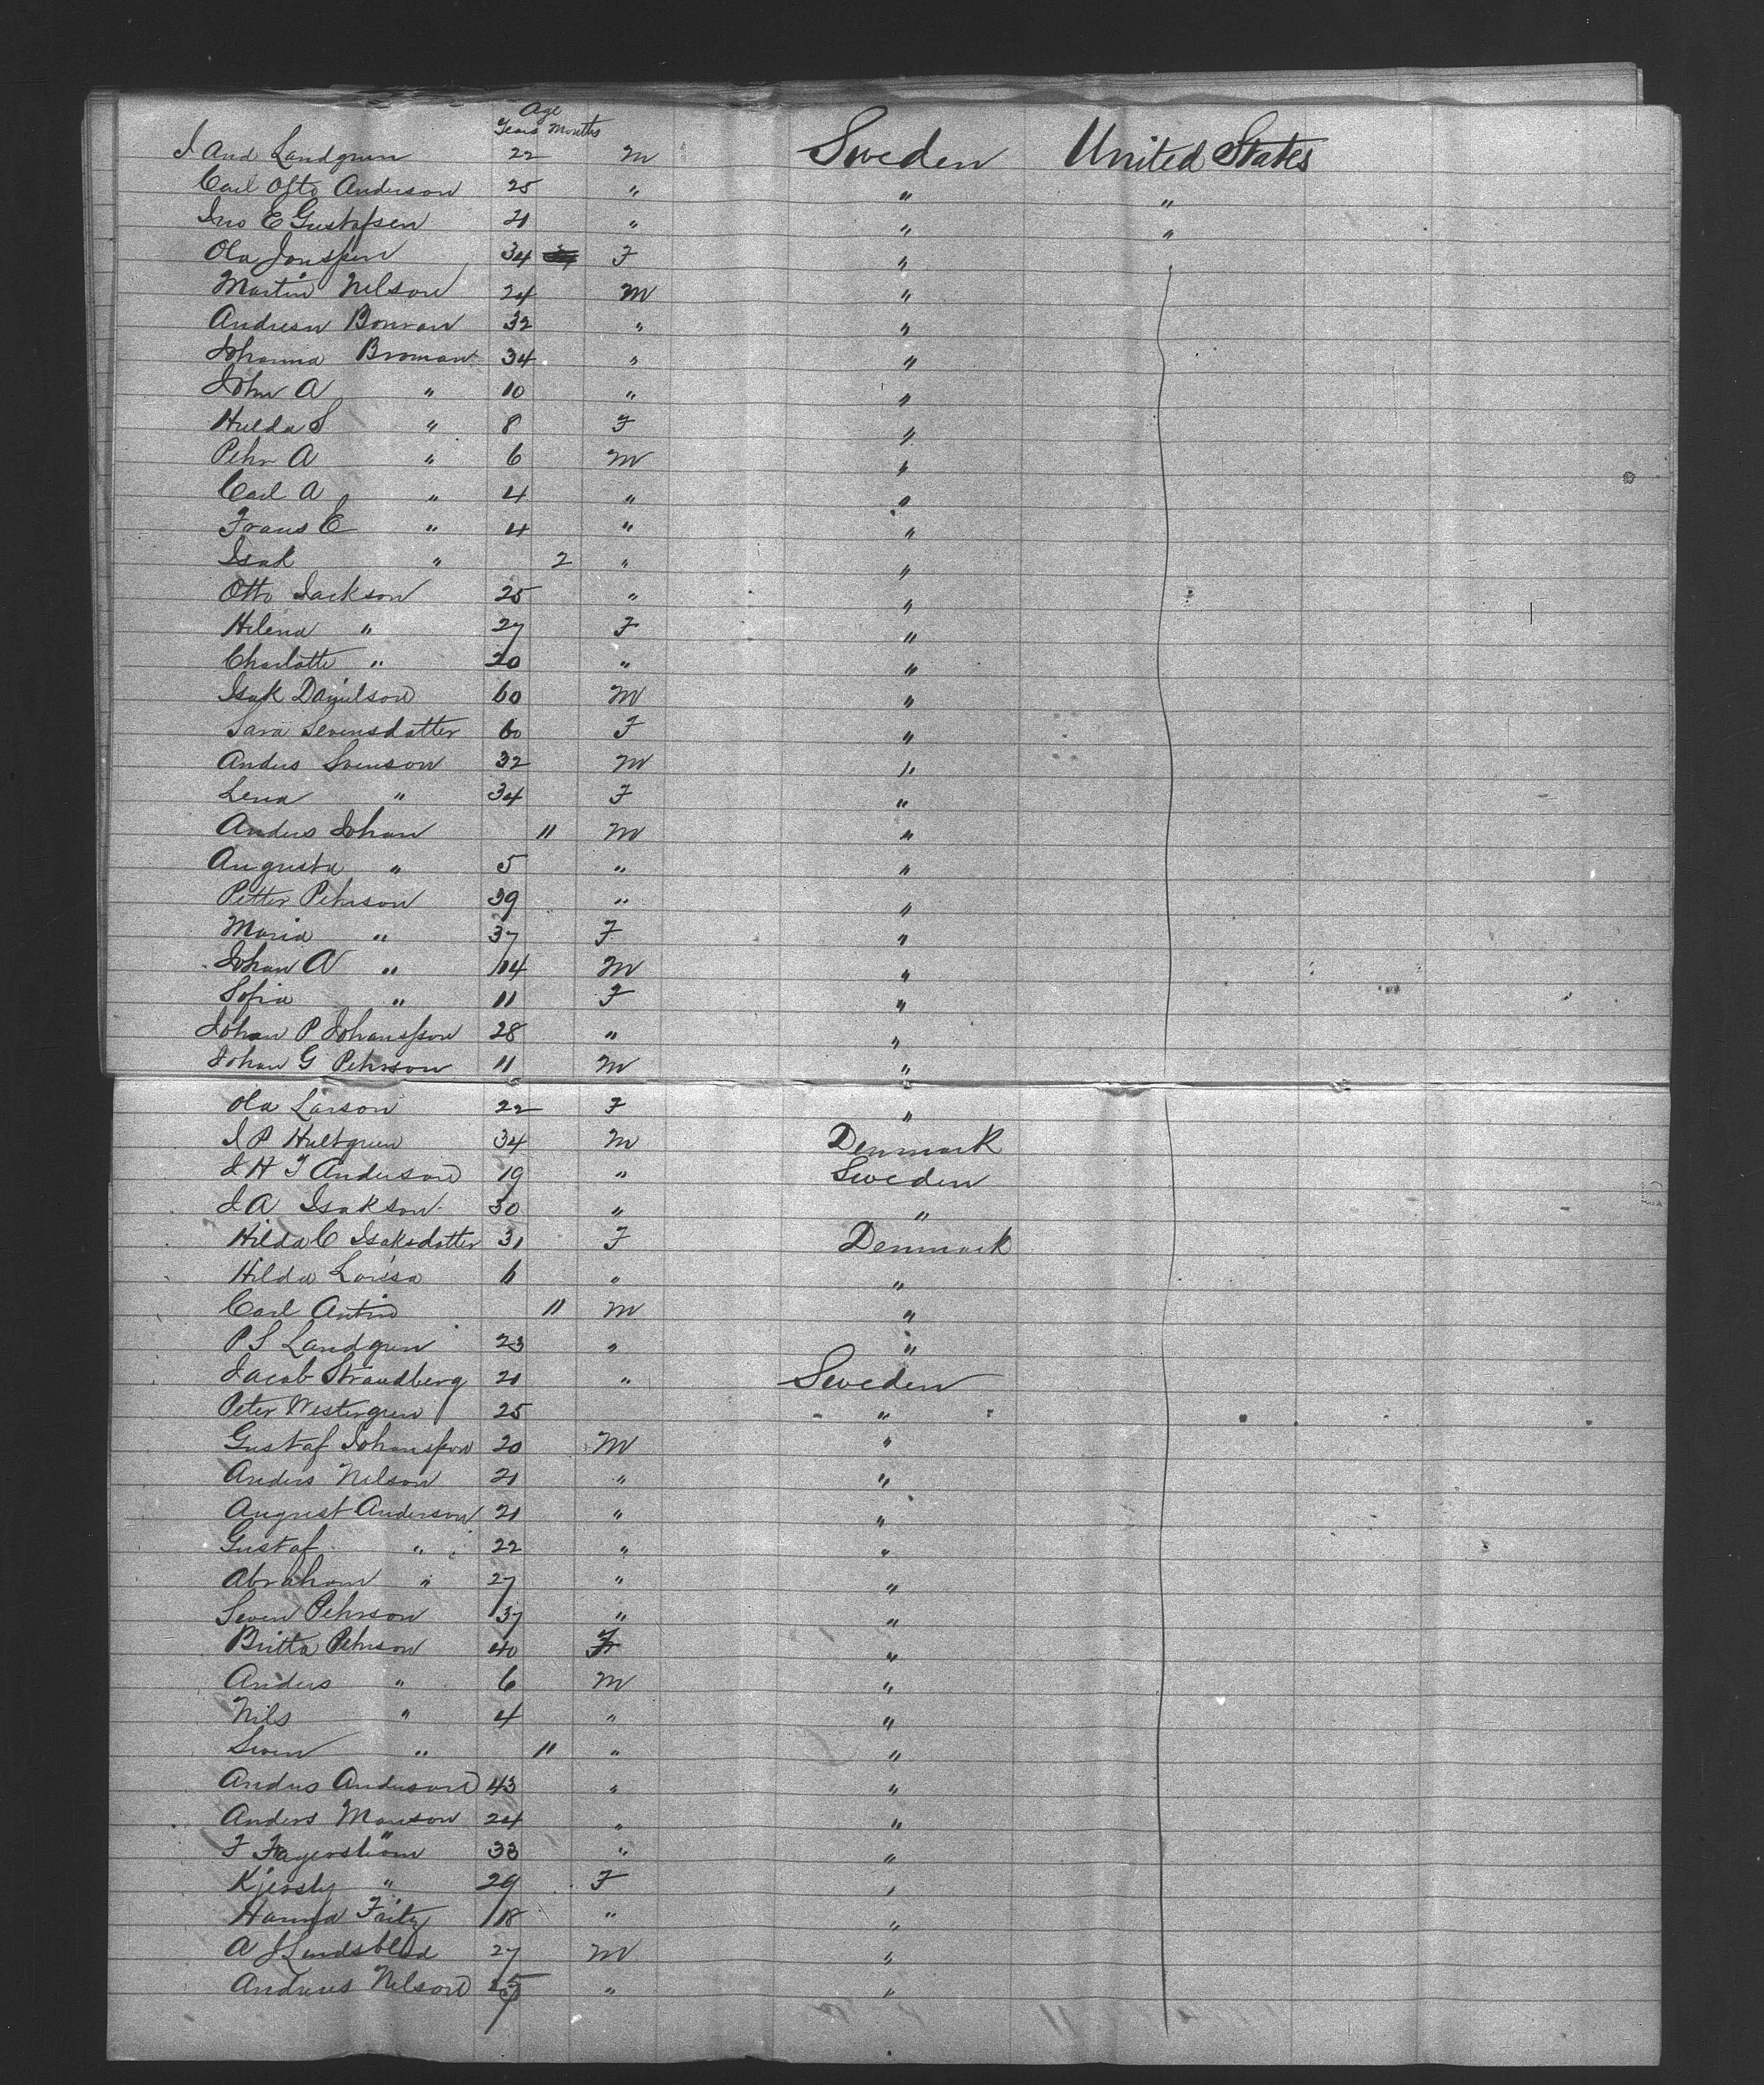 Age
Years Months
J And Landgren 22 M Sweden United States
Carl Otto Anderson 25 " " "
Jno E Gustafsen 21 " " "
Ola Jonssen 34 F "
Martin Nelson 24 M "
Andreas 32 " "
Johanna Broman 34 " "
John A " 10 " "
Hulda S " 8 F "
Pehr A " 6 M "
Carl A " 4 " "
Frans E " 4 " "
Isak " 2 " "
Otto Jackson 25 " "
Helena " 27 F "
Charlotte " 20 " "
Isak Danielson 60 M "
Sara Svensdatter 60 F "
Anders Svenson 32 M "
Lena " 34 F "
Anders Johan 11 M "
Augusta " 5 " "
Petter Pehrson 39 " "
Maria " 37 F "
Johan A " 14 M "
Sofia " 11 F "
Johan P Johansson 28 " "
Johan G Pehrson 11 M "
Ola Larson 22 F "
J P Hultgren 34 M Denmark
J H T Anderson 19 " Sweden
J A Isakson 30 " "
Hilda C Isaksdatter 31 F Denmark
Hilda Lovisa 6 " "
Carl 11 M "
P S Landgren 23 " "
Jacob Strandberg 21 " Sweden
Peter Westergren 25 "
Gustaf Johansson 20 M "
Anders Nelson 21 " "
August Anderson 21 " "
Gustaf " 22 " "
Abraham " 27 " "
Sven Pehrson 37 " "
Britta Pehrson 40 F "
Anders " 6 M "
Nils " 4 " "
Sven " 11 " "
Anders Anderson 43 " "
Anders Monson 24 " "
F Fagerström 33 " "
Kjersty " 29 F "
Hanna Fritz 18 " "
A J Lindsblad 27 M "
Andreas Nelson " "